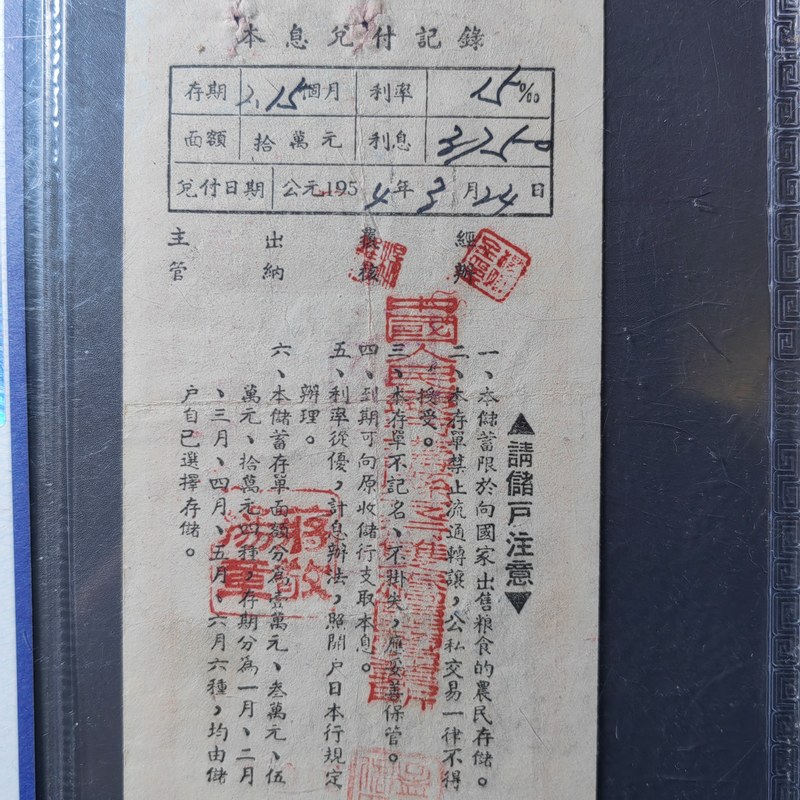 本息兌付記錄
存期 2.15個月 利率 15‰
面額 拾萬元 利息 3,250
兌付日期 公元1954年3月24日
經辦
覆核
出納
主管
▲請儲戶注意▼
一、本儲蓄限於向國家出售粮食的農民存儲。
二、本存單禁止流通轉讓，公私交易一律不得
接受。
三、本存單不記名、不掛失，應妥善保管。
四、到期可向原收儲行支取本息。
五、利率從優，計息辦法，照開户日本行規定
辦理。
六、本儲蓄存單面額分為壹萬元、叁萬元、伍
萬元、拾萬元四種，存期分為一月、二月
、三月、四月、五月、六月六種，均由儲
户自己選擇存儲。
中國人民
蔣敬
湯章